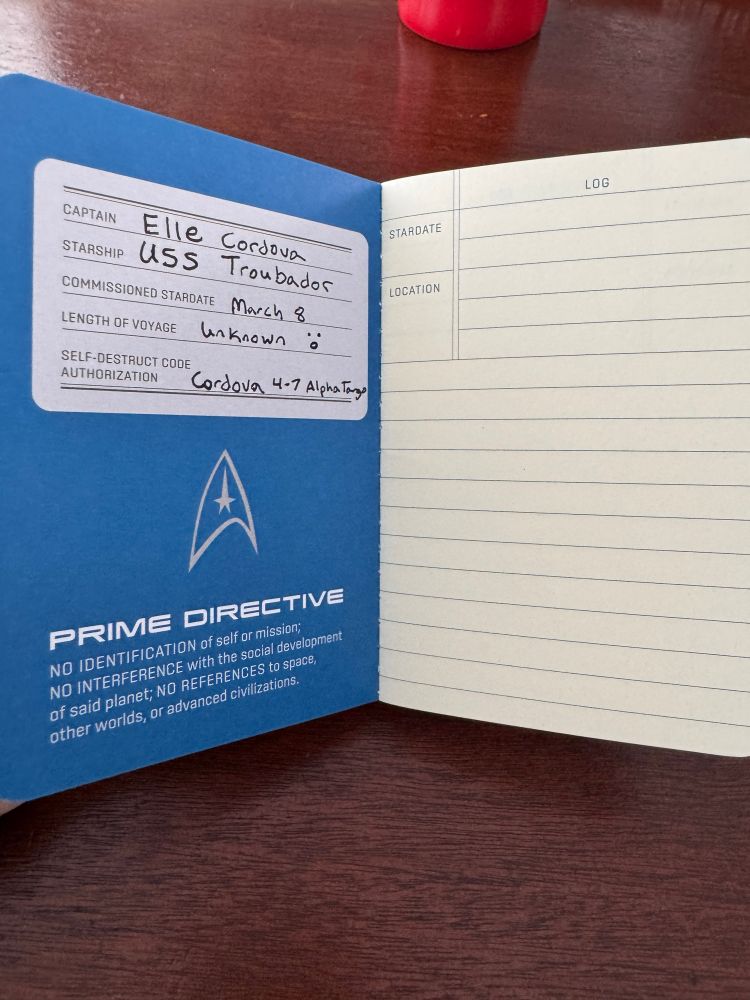 CAPTAIN Elle Cordova
STARSHIP USS Troubador
COMMISSIONED STARDATE March 8
LENGTH OF VOYAGE Unknown
SELF-DESTRUCT CODE
AUTHORIZATION Cordova 4-7 Alpha Tango
PRIME DIRECTIVE
NO IDENTIFICATION of self or mission;
NO INTERFERENCE with the social development
of said planet; NO REFERENCES to space,
other worlds, or advanced civilizations.
LOG
STARDATE
LOCATION